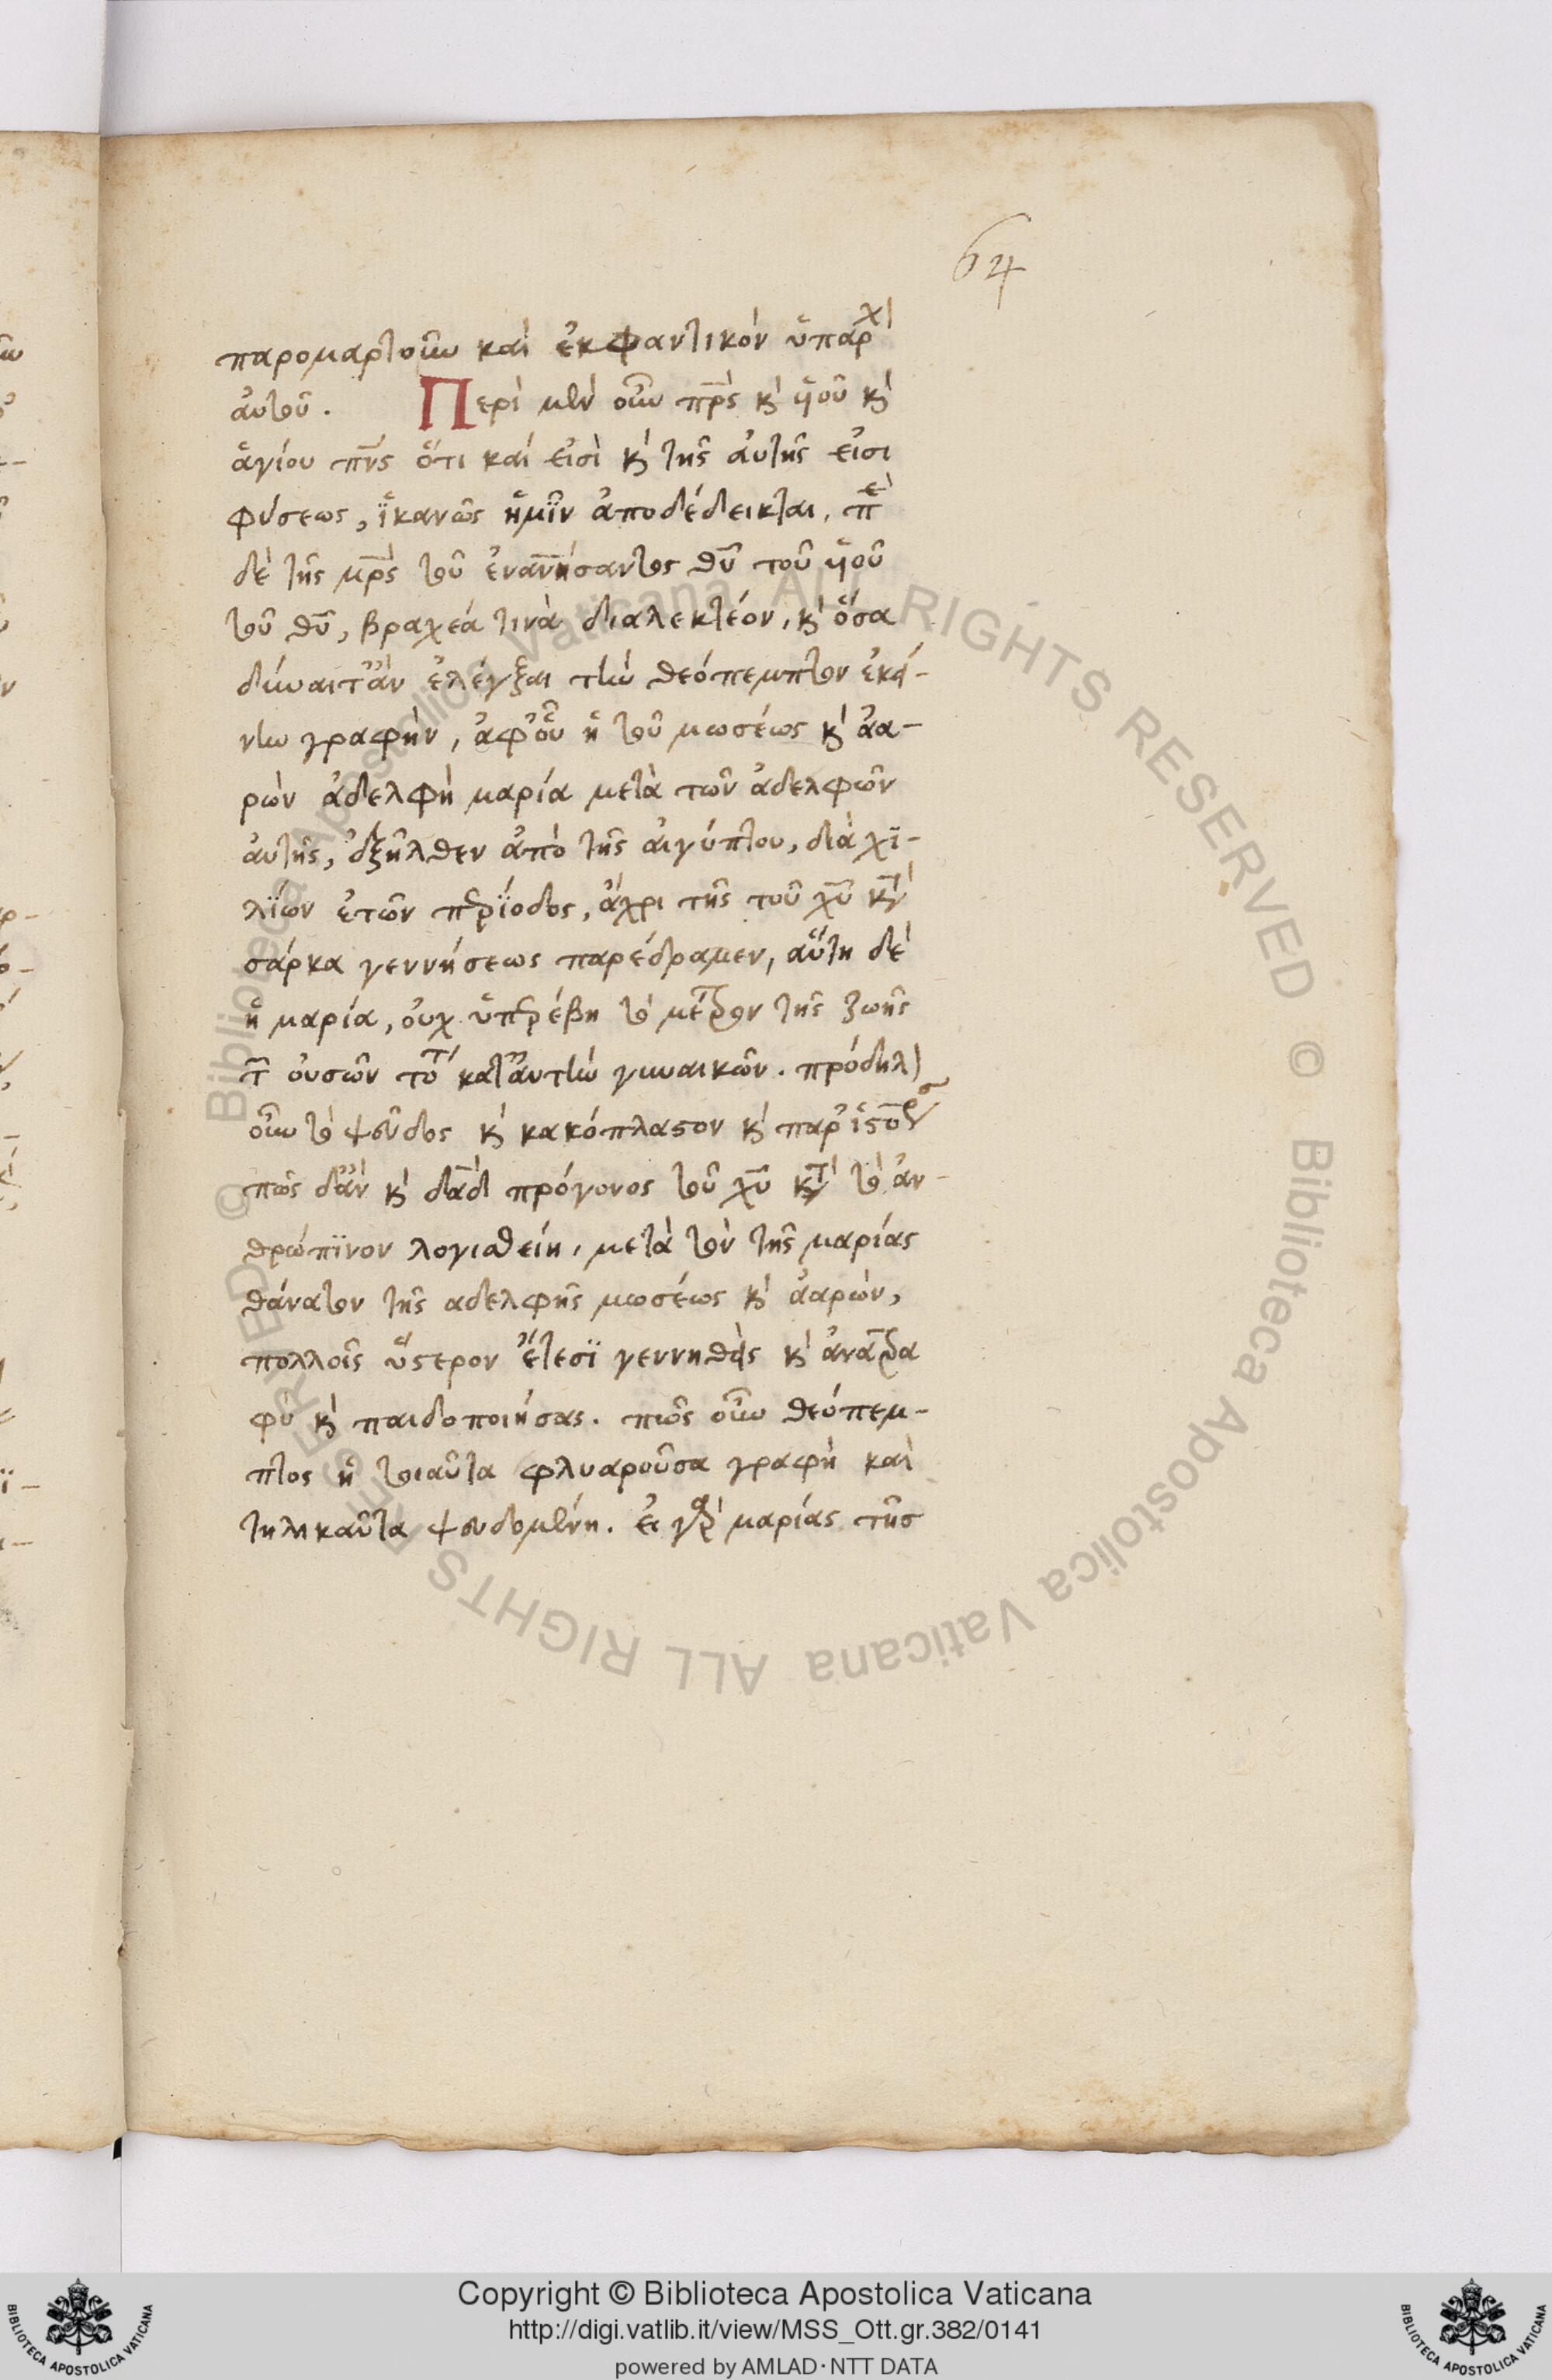 64
παρομαρτοῦν καὶ ἐκφαντικὸν ὑπάρχ
αὐτοῦ. Περὶ μὲν οὖν πρς κ υἱοῦ κ
ἁγίου πνς ὅτι καὶ εἰσὶ κ τῆς αὐτῆς εἰσι
φύσεως, ἱκανῶς ἡμῖν ἀποδέδεικται, πε
δὲ τῆς μρς τοῦ ἐναννήσαντος θυ τοῦ υἱοῦ
τοῦ θυ, βραχέα τινὰ διαλεκτέον, κ ὅσα
δύναιτἂν ἐλέγξαι τὴν θεόπεμπτον ἐκεί-
νην γραφήν, ἀφ'οὗ ἡ τοῦ μωσέως κ ἀα-
ρὼν ἀδελφὴ μαρία μετὰ τῶν ἀδελφῶν
αὐτῆς, ἐξῆλθεν ἀπὸ τῆς αἰγύπτου, διὰ χϊ-
λϊων ἐτῶν περϊοδος, ἄχρι τῆς τοῦ χυ κτ
σάρκα γεννήσεως παρέδραμεν, αὕτη δὲ
ἡ μαρία, οὐχ ὑπερέβη τὸ μέτρον τῆς ζωῆς
τ οὐσῶν τότ κατἀυτὴν γυναικῶν. πρόδηλ
οὖν τὸ ψεῦδος κ κακόπλαστον κ παρ'ἱστορ
πῶς δἂν κ δαδ πρόγονος τοῦ χυ κτ τὸ ἀν-
θρώπϊνον λογισθείη, μετὰ τὸν τῆς μαρίας
θάνατον τῆς αδελφῆς μωσέως κ ἀαρών,
πολλοῖς ὕστερον ἔτεσϊ γεννηθεὶς κ ἀνατρα
φεὶ κ παιδοποιήσας. πῶς οὖν θεόπεμ-
πτος ἡ τοιαῦτα φλυαροῦσα γραφὴ καὶ
τηλικαῦτα ψευδομένη. εἰ γὰρ μαρίας τῆς
Copyright © Biblioteca Apostolica Vaticana
http://digi.vatlib.it/view/MSS_Ott.gr.382/0141
powered by AMLAD·NTT DATA
BIBLIOTECA APOSTOLICA VATICANA
BIBLIOTECA APOSTOLICA VATICANA
© Biblioteca Apostolica Vaticana ALL RIGHTS RESERVED © Biblioteca Apostolica Vaticana ALL RIGHTS RESERVED